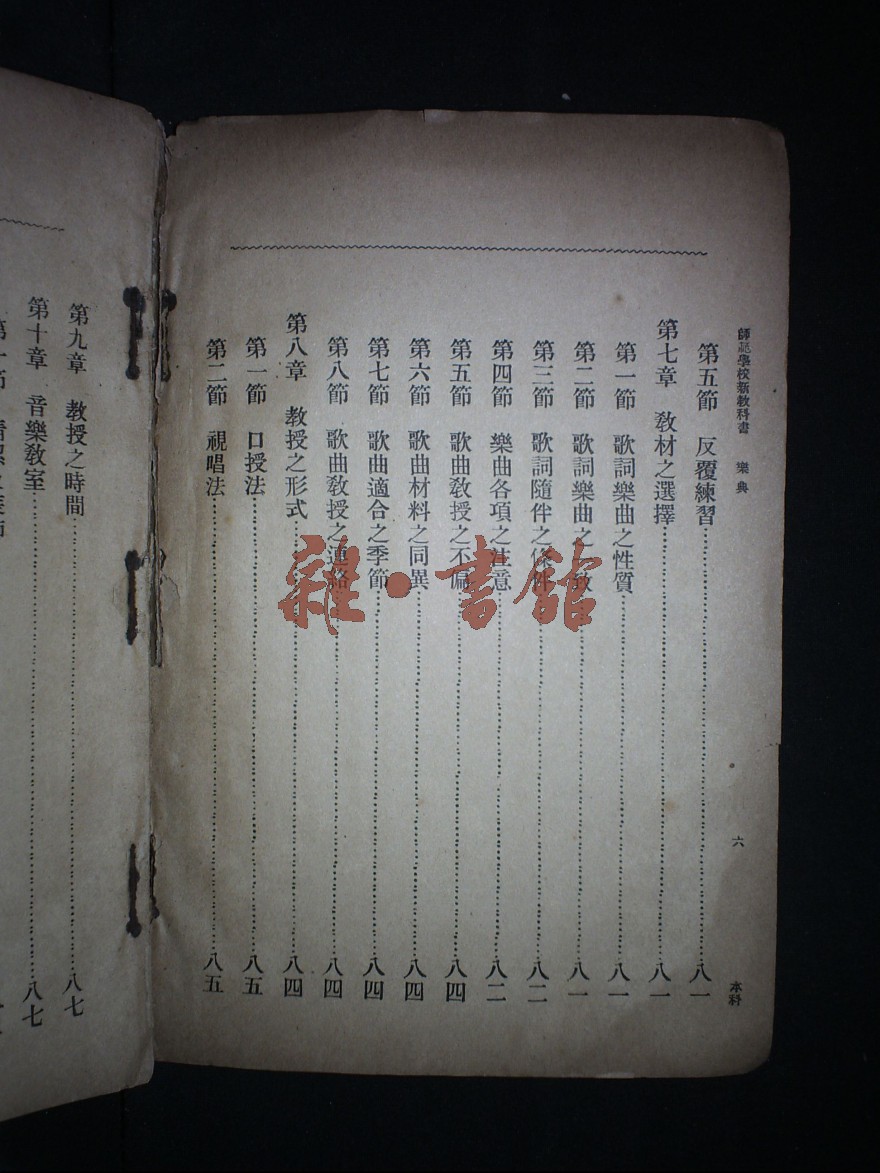 師範學校新教科書 樂典 六 本科
第五節 反覆練習 八一
第七章 教材之選擇 八一
第一節 歌詞樂曲之性質 八一
第二節 歌詞樂曲之一致 八一
第三節 歌詞隨伴之條件 八二
第四節 樂曲各項之注意 八二
第五節 歌曲教授之不偏 八四
第六節 歌曲材料之同異 八四
第七節 歌曲適合之季節 八四
第八節 歌曲教授之連絡 八四
第八章 教授之形式 八四
第一節 口授法 八五
第二節 視唱法 八五
第九章 教授之時間 八七
第十章 音樂教室 八七
雜·書館